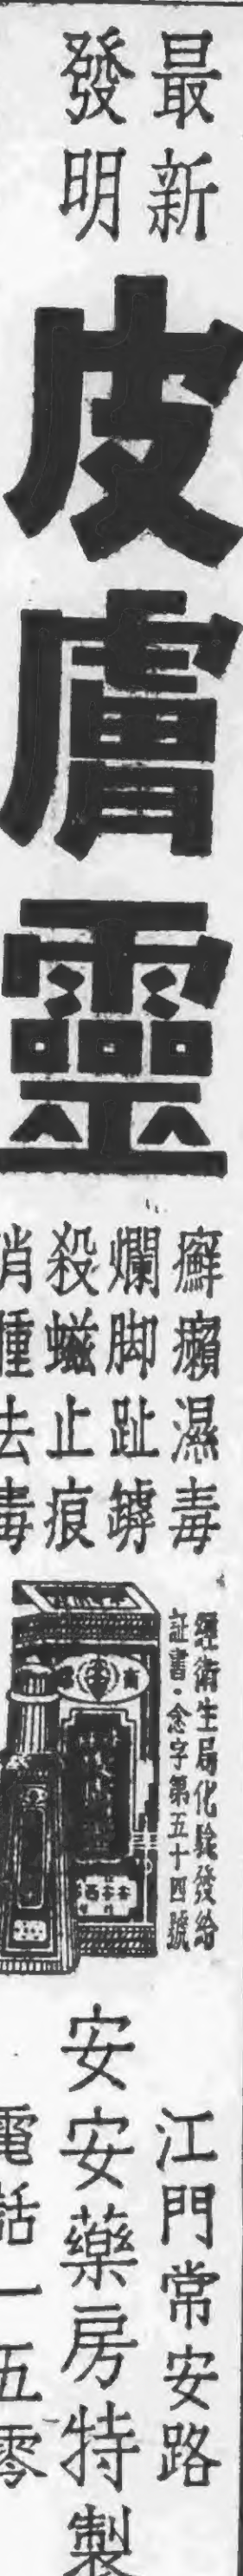 最新
發明
皮膚靈
癬癩濕毒
爛脚趾罅
殺螆止痕
消腫去毒
經衛生局化驗發給
証書·念字第五十四號
江門常安路
安安藥房特製
電話一五零